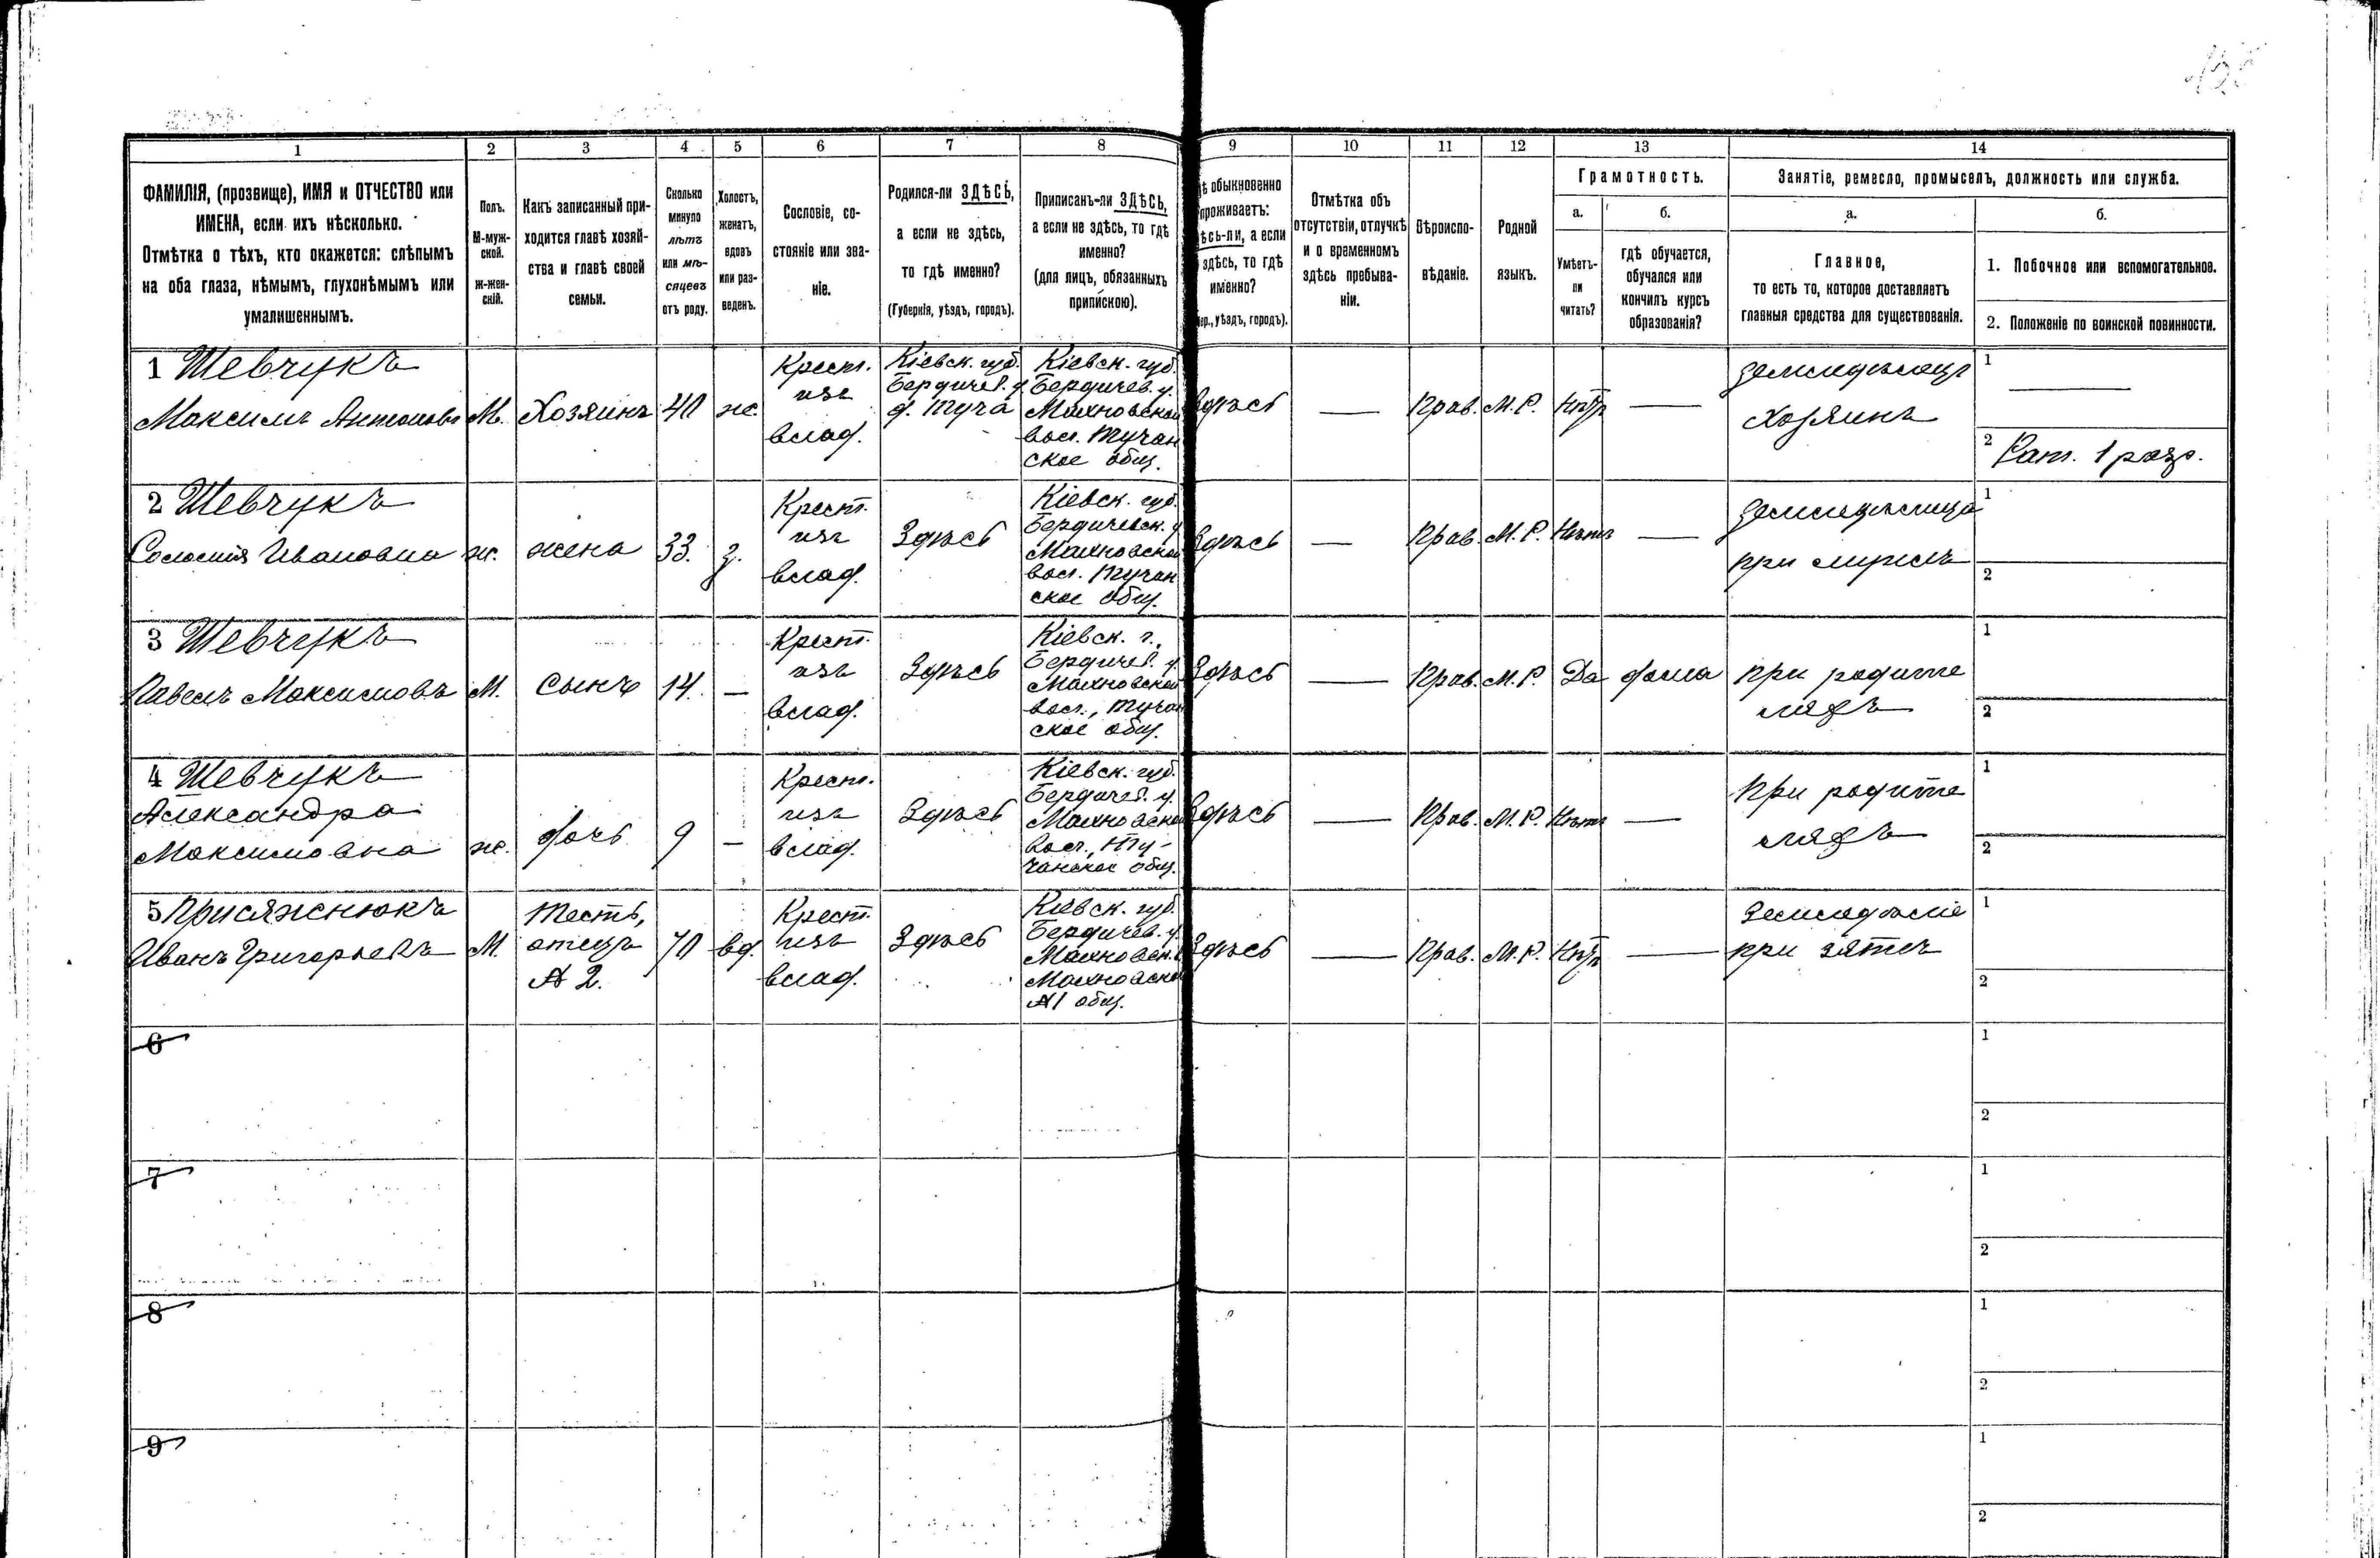 1
2
3
4
5
6
7
8
9
10
11
12
13
14
ФАМИЛІЯ, (прозвище), ИМЯ и ОТЧЕСТВО или
ИМЕНА, если ихъ нѣсколько.
Отмѣтка о тѣхъ, кто окажется: слѣпымъ
на оба глаза, нѣмымъ, глухонѣмымъ или
умалишеннымъ.
Полъ.
М-муж-
ской.
ж-жен-
скій.
Какъ записанный при-
ходится главѣ хозяй-
ства и главѣ своей
семьи.
Сколько
минуло
лѣтъ
или мѣ-
сяцевъ
отъ роду.
Холостъ,
женатъ,
вдовъ
или раз-
веденъ.
Сословіе, со-
стояніе или зва-
ніе.
Родился-ли ЗДѢСЬ,
а если не здѣсь,
то гдѣ именно?
(Губернія, уѣздъ, городъ).
Приписанъ-ли ЗДѢСЬ,
а если не здѣсь, то гдѣ
именно?
(для лицъ, обязанныхъ
припискою).
ѣ обыкновенно
проживаетъ:
ѣсь-ли, а если
здѣсь, то гдѣ
именно?
ер., уѣздъ, городъ).
Отмѣтка объ
отсутствіи, отлучкѣ
и о временномъ
здѣсь пребыва-
ніи.
Вѣроиспо-
вѣданіе.
Родной
языкъ.
Грамотность.
а.
б.
Умѣетъ-
ли
читать?
гдѣ обучается,
обучался или
кончилъ курсъ
образованія?
Занятіе, ремесло, промыселъ, должность или служба.
а.
б.
Главное,
то есть то, которое доставляетъ
главныя средства для существованія.
1. Побочное или вспомогательное.
2. Положеніе по воинской повинности.
1 Шевчукъ
Максимъ Антоновъ
М.
Хозяинъ
40
ж.
Крест.
изъ
влад.
Кіевск. губ.
Бердичев. у.
д. Туча
Кіевск. губ.
Бердичев. у.
Махновской
вол. Тучан
ское общ.
Здѣсь
—
Прав.
М.Р.
Нѣтъ
—
земледѣлецъ
Хозяинъ
1 —
2 Рат. 1 разр.
2 Шевчукъ
Соломія Ивановна
ж.
жена
33.
з.
Крест.
изъ
влад.
Здѣсь
Кіевск. губ.
Бердичевск. у
Махновской
вол. Тучан
ское общ.
Здѣсь
—
Прав.
М.Р.
Нѣтъ
—
земледѣлица
при мужѣ
1
2
3 Шевчукъ
Павелъ Максимовъ
М.
Сынъ
14.
—
Крест.
изъ
влад.
Здѣсь
Кіевск. г.,
Бердичев. у.
Махновской
вол., Тучан
ское общ.
Здѣсь
—
Прав.
М.Р.
Да
дома
при родите
ляхъ
1
2
4 Шевчукъ
Александра
Максимовна
ж.
дочь
9
—
Крест.
изъ
влад.
Здѣсь
Кіевск. губ.
Бердичев. у.
Махновской
вол., Ту-
чанское общ.
Здѣсь
—
Прав.
М.Р.
Нѣтъ
—
при родите
ляхъ
1
2
5 Присяжнюкъ
Иванъ Григорьевъ
М.
Тесть,
отецъ
№ 2.
70
вд.
Крест.
изъ
влад.
Здѣсь
Кіевск. губ.
Бердичев. у.
Махновск. в
Махновско
№1 общ.
Здѣсь
—
Прав.
М.Р.
Нѣтъ
—
Земледѣліе
при зятѣ
1
2
6
1
2
7
1
2
8
1
2
9
1
2